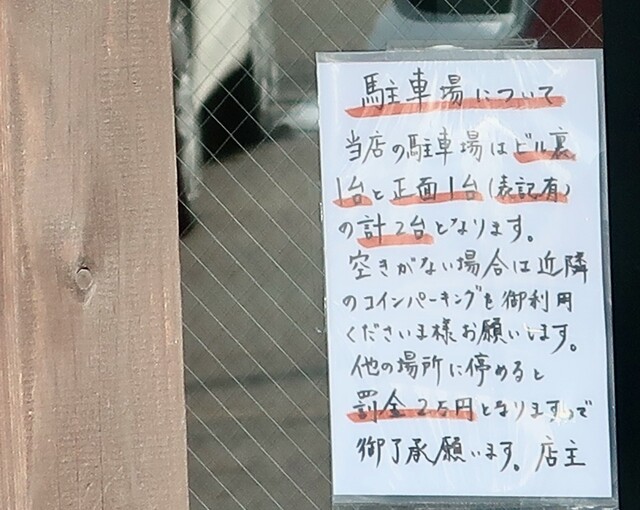 駐車場について
当店の駐車場はビル裏
1台と正面1台(表記有)
の計2台となります。
空きがない場合は近隣
のコインパーキングを御利用
くださいま様お願いします。
他の場所に停めると
罰金2万円となりますので
御了承願います。店主